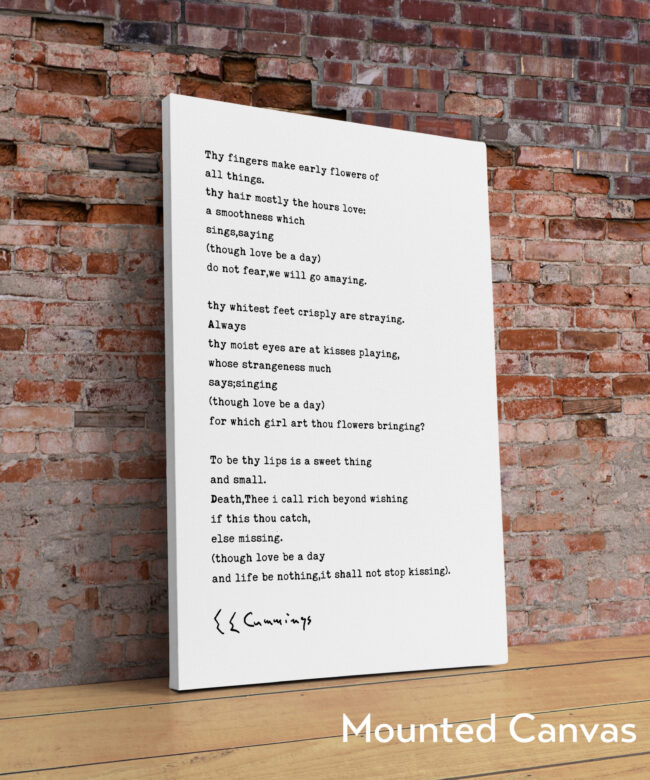 Thy fingers make early flowers of
all things.
thy hair mostly the hours love:
a smoothness which
sings,saying
(though love be a day)
do not fear,we will go amaying.
thy whitest feet crisply are straying.
Always
thy moist eyes are at kisses playing,
whose strangeness much
says;singing
(though love be a day)
for which girl art thou flowers bringing?
To be thy lips is a sweet thing
and small.
Death,Thee i call rich beyond wishing
if this thou catch,
else missing.
(though love be a day
and life be nothing,it shall not stop kissing).
E E Cummings
Mounted Canvas